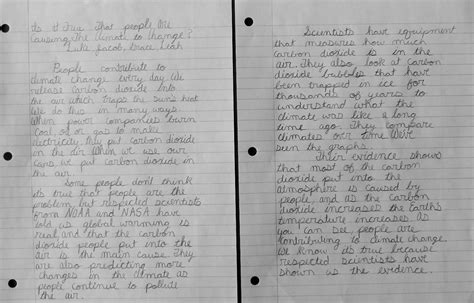 Is it True That people Are
Causing The Climat to Change?
Luke, Jacob, Grace, Leah
People contribute to
climate change every day. We
release carbon dioxide into
the air which traps the sun's heat.
We do this in many ways
When power companies burn
Coal, oil or gas to make
electricity, they put carbon dioxide
in the air. When we use our
cars, we put carbon dioxide in
the air.
Some people don't think
its true that people are the
problem, but respected scientists
from NOAA and NASA have
told us global warming is
real and that the carbon
dioxide people put into the
air is the main cause. They
are also predicting more
changes in the climate as
people continue to pollute
the air.
Scientists have equipment
that measures how much
carbon dioxide is in the
air. They also look at carbon
dioxide bubbles that have
been trapped in ice for
thousands of years to
understand what the
climate was like a long
time ago. They compare
climates over time. We've
seen the graphs.
Their evidence shows
that most of the carbon
dioxide put into the
atmosphere is caused by
people and as the carbon
dioxide increases the Earth's
temperature increases. As
you can see, people are
contributing to climate change.
We know its true because
respected scientists have
shown us the evidence.